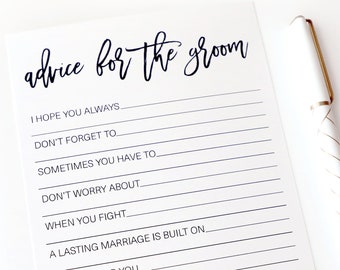 advice for the groom
I HOPE YOU ALWAYS
DON'T FORGET TO
SOMETIMES YOU HAVE TO
DON'T WORRY ABOUT
WHEN YOU FIGHT
A LASTING MARRIAGE IS BUILT ON
YOU